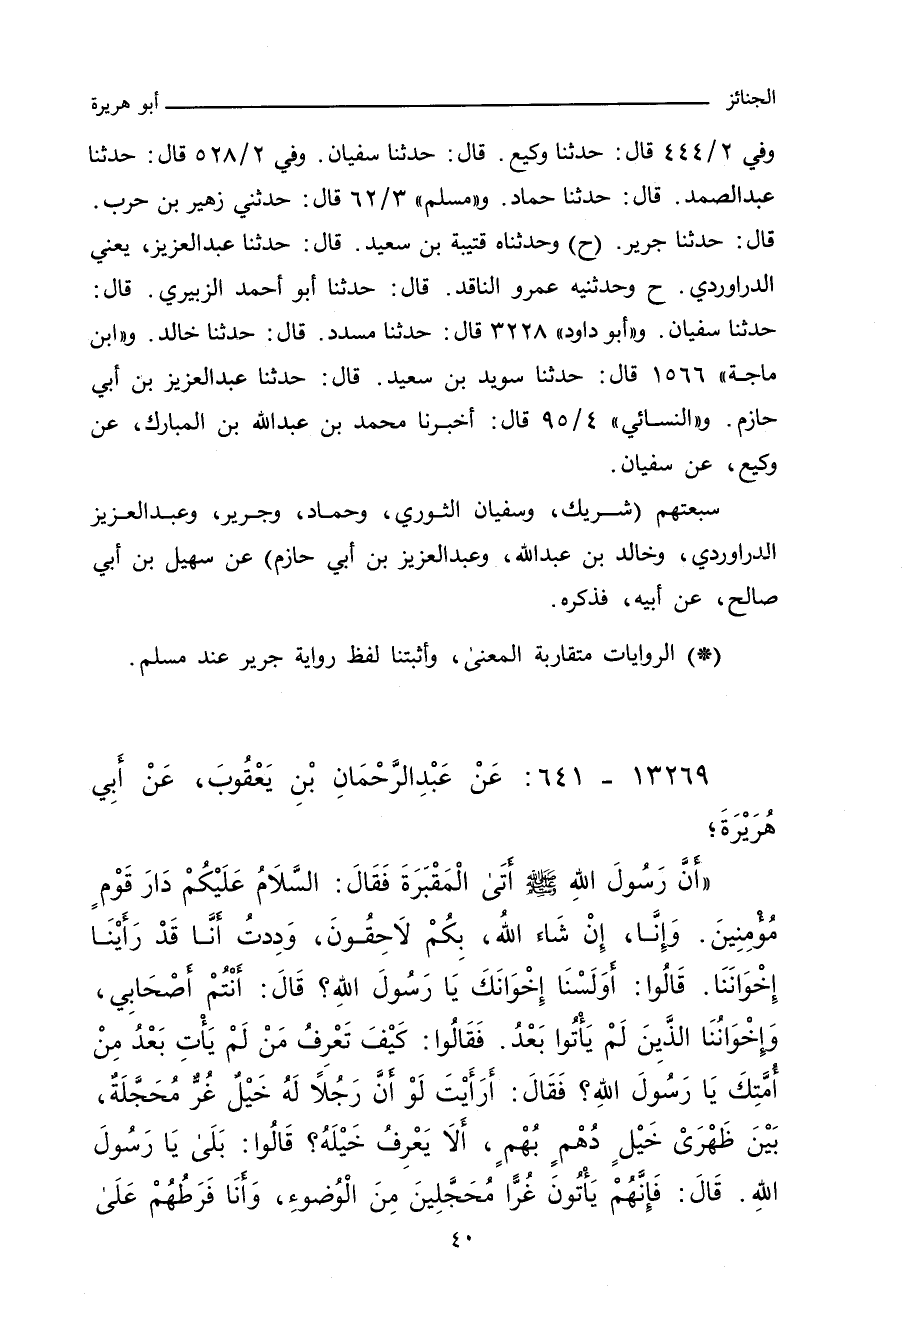 الجنائز ــــــــــ أبو هريرة
وفي ٤٤٤/٢ قال: حدثنا وكيع. قال: حدثنا سفيان. وفي ٥٢٨/٢ قال: حدثنا
عبدالصمد. قال: حدثنا حماد. و«مسلم» ٦٢/٣ قال: حدثني زهير بن حرب.
قال: حدثنا جرير. (ح) وحدثناه قتيبة بن سعيد. قال: حدثنا عبدالعزيز، يعني
الدراوردي. ح وحدثنيه عمرو الناقد. قال: حدثنا أبو أحمد الزبيري. قال:
حدثنا سفيان. و«أبو داود» ٣٢٢٨ قال: حدثنا مسدد. قال: حدثنا خالد. و«ابن
ماجة» ١٥٦٦ قال: حدثنا سويد بن سعيد. قال: حدثنا عبدالعزيز بن أبي
حازم. و«النسائي» ٩٥/٤ قال: أخبرنا محمد بن عبدالله بن المبارك، عن
وكيع، عن سفيان.
سبعتهم (شريك، وسفيان الثوري، وحماد، وجرير، وعبدالعزيز
الدراوردي، وخالد بن عبدالله، وعبدالعزيز بن أبي حازم) عن سهيل بن أبي
صالح، عن أبيه، فذكره.
(*) الروايات متقاربة المعنىٰ، وأثبتنا لفظ رواية جرير عند مسلم.
١٣٢٦٩ - ٦٤١: عَنْ عَبْدِالرَّحْمَانِ بْنِ يَعْقُوبَ، عَنْ أَبِي
هُرَيْرَةَ؛
«أَنَّ رَسُولَ اللهِ ﷺ أَتَىٰ الْمَقْبَرَةَ فَقَالَ: السَّلاَمُ عَلَيْكُمْ دَارَ قَوْمٍ
مُؤْمِنِينَ. وَإِنَّا، إِنْ شَاءَ اللهُ، بِكُمْ لاَحِقُونَ، وَدِدتُ أَنَّا قَدْ رَأَيْنَا
إِخْوَانَنَا. قَالُوا: أَوَلَسْنَا إِخْوَانَكَ يَا رَسُولَ اللهِ؟ قَالَ: أَنْتُمْ أَصْحَابِي،
وَإِخْوَانُنَا الَّذِينَ لَمْ يَأْتُوا بَعْدُ. فَقَالُوا: كَيْفَ تَعْرِفُ مَنْ لَمْ يَأْتِ بَعْدُ مِنْ
أُمَّتِكَ يَا رَسُولَ اللهِ؟ فَقَالَ: أَرَأَيْتَ لَوْ أَنَّ رَجُلاً لَهُ خَيْلٌ غُرٌّ مُحَجَّلَةٌ،
بَيْنَ ظَهْرَيْ خَيْلٍ دُهْمٍ بُهْمٍ، أَلاَ يَعْرِفُ خَيْلَهُ؟ قَالُوا: بَلَىٰ يَا رَسُولَ
اللهِ. قَالَ: فَإِنَّهُمْ يَأْتُونَ غُرًّا مُحَجَّلِينَ مِنَ الْوُضُوءِ، وَأَنَا فَرَطُهُمْ عَلَىٰ
٤٠